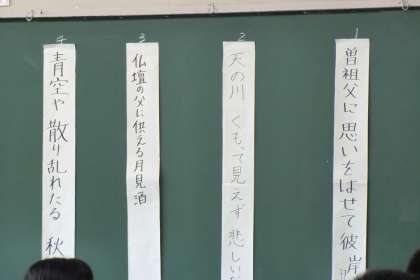 1
曽祖父に思いをはせて彼岸
2
天の川くもって見えず悲しい
3
仏壇の父に供える月見酒
4
青空や散り乱れたる秋